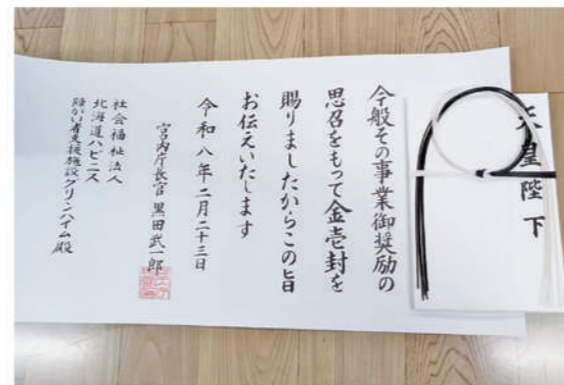 今般その事業御奨励の
思召をもって金壱封を
賜りましたからこの旨
お伝えいたします
令和八年二月二十三日
宮内庁長官 黒田武一郎
社会福祉法人
北海道ハピニス
障がい者支援施設グリンハイム殿
天皇陛下